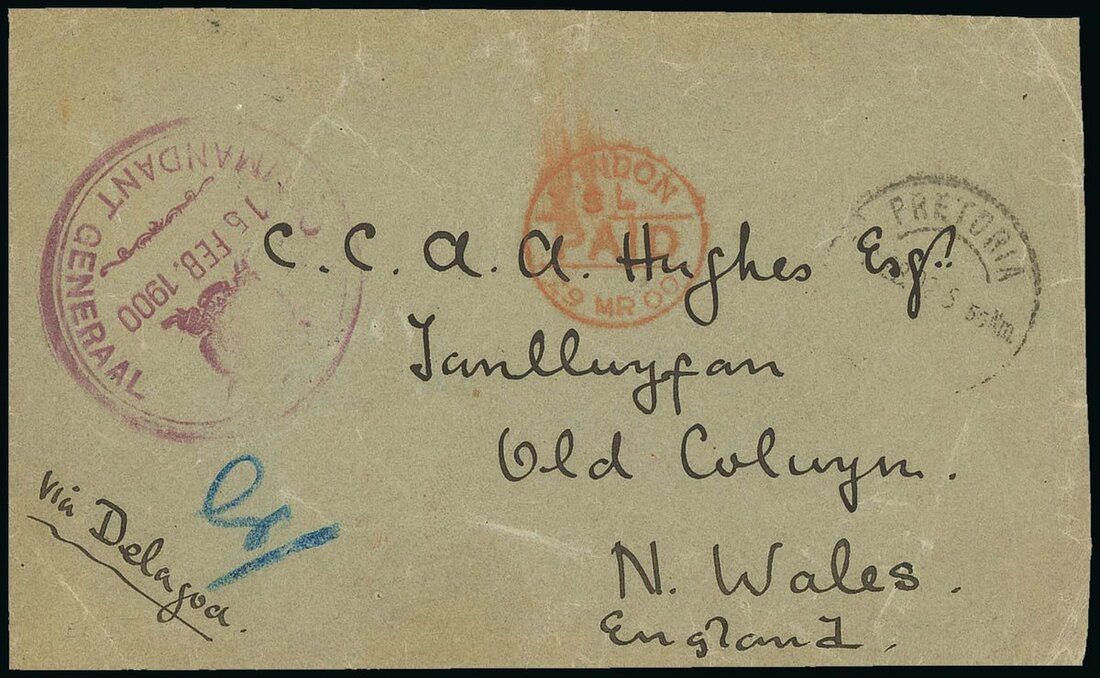 COMMANDANT GENERAAL
15 FEB. 1900
LONDON
SL
PAID
MR 00
PRETORIA
C. C. A. A. Hughes Esqr.
Tanllwyfan
Old Colwyn.
N. Wales.
England.
via Delagoa.